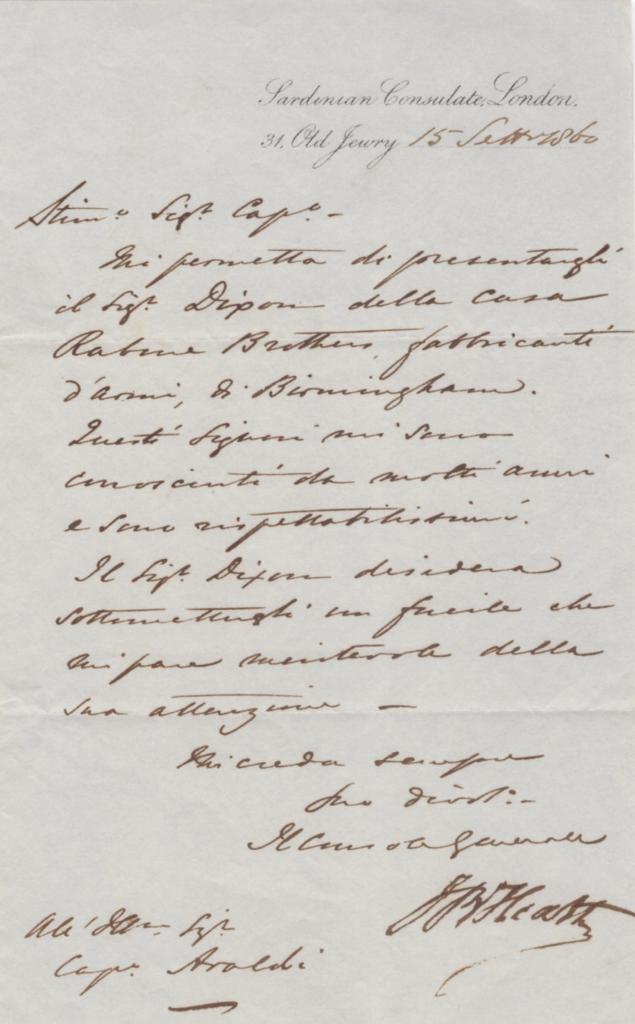 Sardinian Consulate, London.
31, Old Jewry 15 Settr 1860
Stimo Sigr Capo -
Mi permetta di presentargli
il Sigr Dixon della casa
Rabone Brothers, fabbricanti
d'armi, di Birmingham.
Questi Signori mi sono
conosciuti da molti anni
e sono rispettabilissimi.
Il Sigr Dixon desidera
sottomettergli un fucile che
mi pare meritevole della
sua attenzione -
Mi creda sempre
suo divoto -
Il Console Generale
J B Heath
All' Illmo Sigr
Capo Araldi